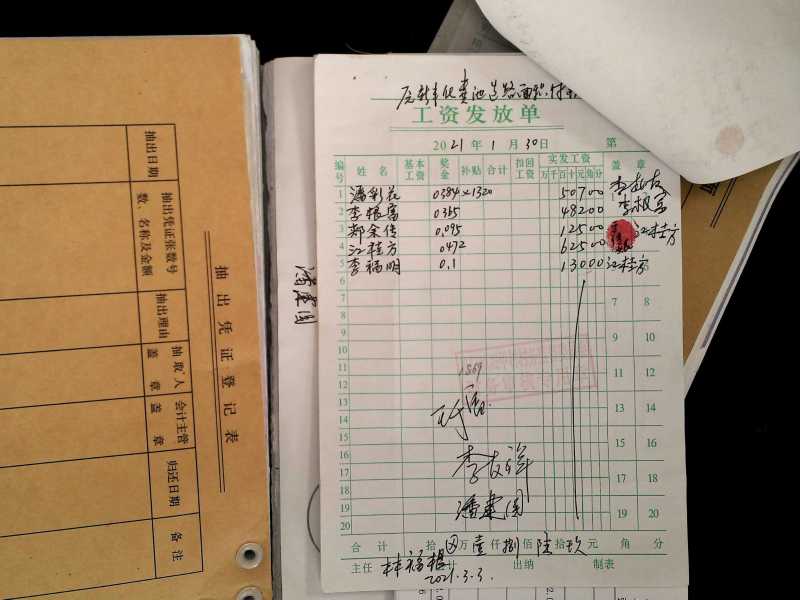 抽出凭证登记表
抽出日期
抽出凭证张数号数、名称及金额
抽出理由
抽取人盖章
会计主管盖章
归还日期
备注
潘建国
化粪池道路面积
工资发放单
2021年1月30日 第
编号 姓名 基本工资 奖金 补贴 合计 扣回工资 实发工资 盖章
万千百十元角分
1 潘彩花 0384×1320 50700
2 李根富 0365 48200 李根富
3 郑余传 0.095 12500
4 江桂方 0472 62500 江桂方
5 李福明 0.1 13000 江桂方
6
7 7 8
8
9 9 10
10
11 11 12
12
13 13 14
14
15 15 16
16
17 17 18
18
19 19 20
20
1869
李友祥
潘建国
合计 拾 万壹仟捌佰陆拾玖元 角 分
主任 林福根 出纳 制表
2021.3.3.